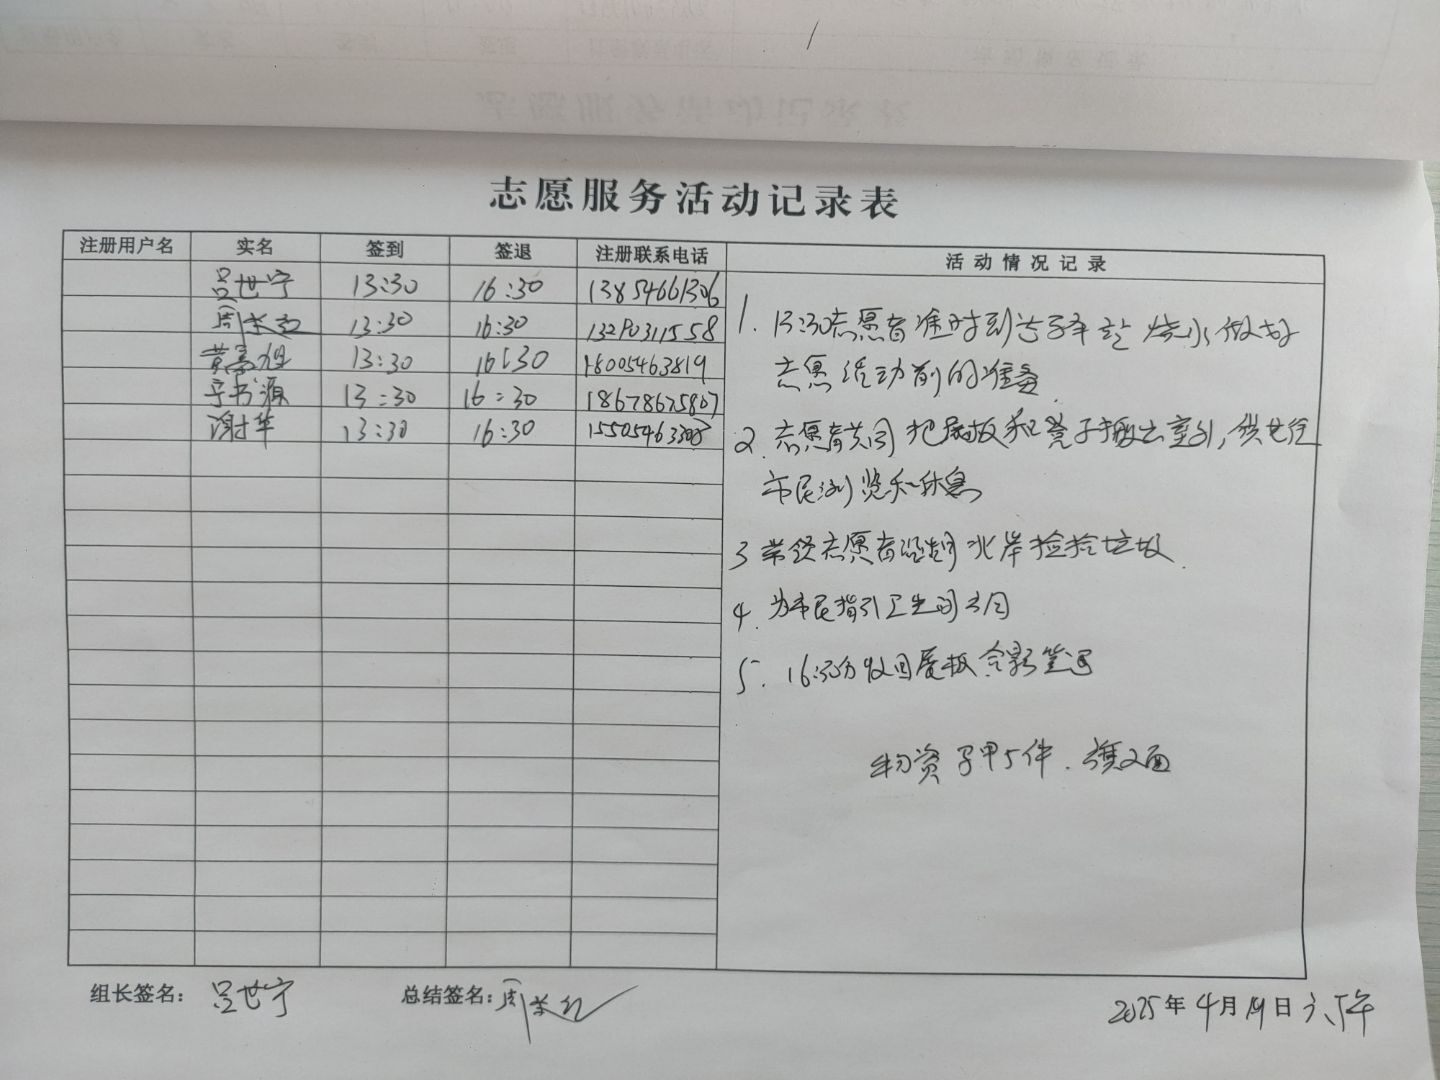 志愿服务活动记录表
注册用户名 实名 签到 签退 注册联系电话 活动情况记录
吕世宁 13:30 16:30 13854661306
周荣红 13:30 16:30 132
13:30 16:30 18005463819
书源 13:30 16:30 18678675807
谢华 13:30 16:30 15505463308
1. 13:30志愿者准时到 烧水做好
志愿活动前的准备.
2. 志愿者共同把展板和凳子搬出室外,供过往
市民浏览和休息
3 带领志愿者沿湖北岸捡拾垃圾.
4. 为市民指引卫生间方向
5. 16:30分收回展板合影签退
物资 马甲5件. 旗2面
组长签名: 吕世宁 总结签名: 周荣红
2025年4月19日 六 下午